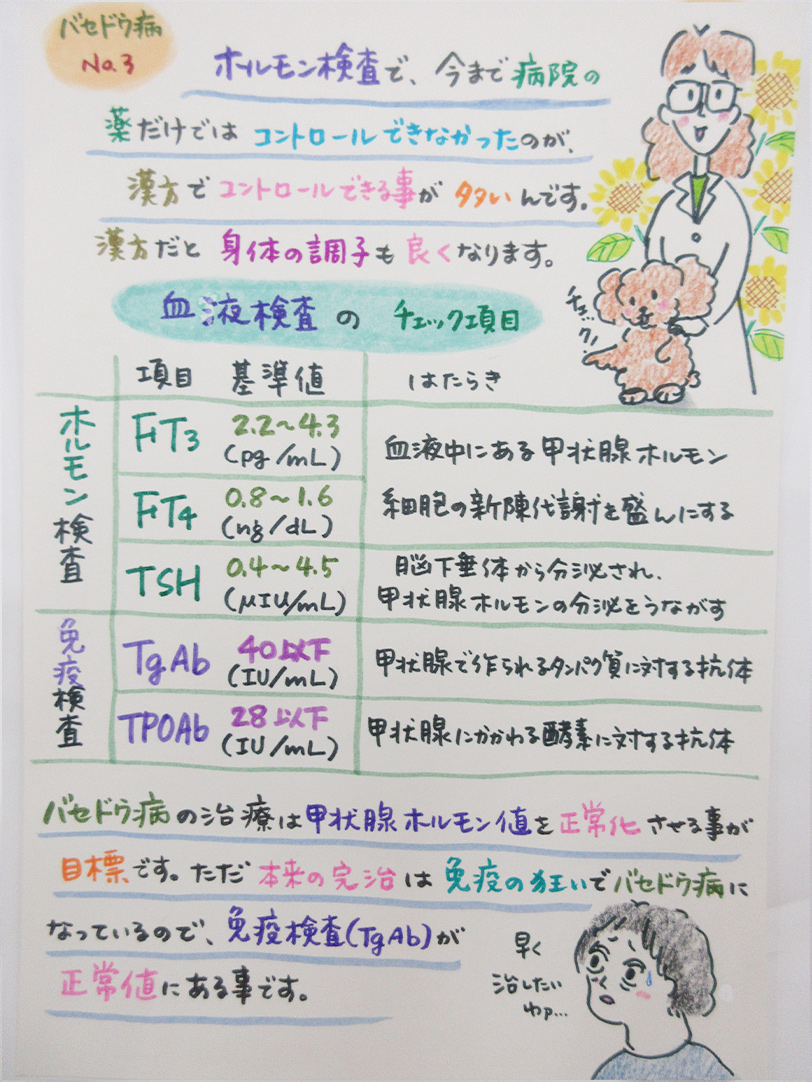 バセドウ病
No.3
ホルモン検査で、今まで病院の
薬だけではコントロールできなかったのが、
漢方でコントロールできる事が多いんです。
漢方だと身体の調子も良くなります。
血液検査のチェック項目
チェッ
ク!
項目 基準値 はたらき
ホルモン検査
FT3 2.2~4.3
(pg/mL)
血液中にある甲状腺ホルモン
FT4 0.8~1.6
(ng/dL)
細胞の新陳代謝を盛んにする
TSH 0.4~4.5
(μIU/mL)
脳下垂体から分泌され、
甲状腺ホルモンの分泌をうながす
免疫検査
TgAb 40以下
(IU/mL)
甲状腺で作られるタンパク質に対する抗体
TPOAb 28以下
(IU/mL)
甲状腺にかかわる酵素に対する抗体
バセドウ病の治療は甲状腺ホルモン値を正常化させる事が
目標です。ただ本来の完治は免疫の狂いでバセドウ病に
なっているので、免疫検査(TgAb)が
正常値にある事です。
早く
治したい
わァ…